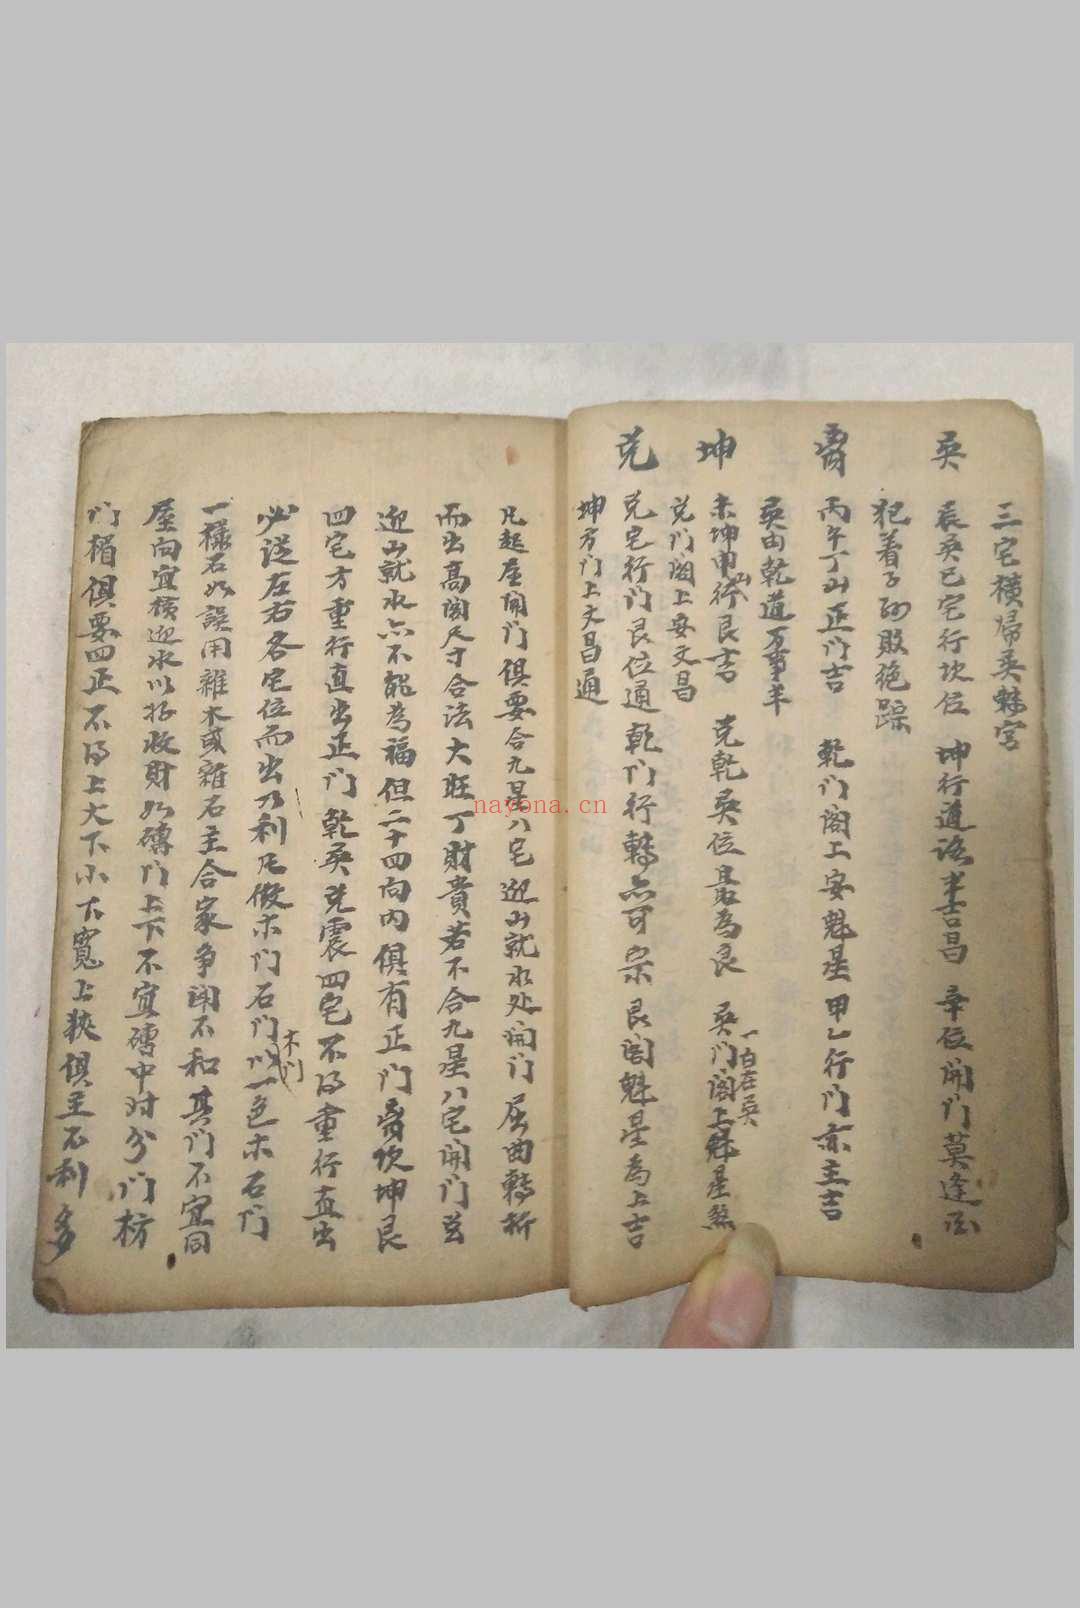 三宅橫歸巽魅宮
巽
辰巽巳宅行坎位 坤行道路半吉昌 辛位開门莫逢
犯着子孙敗絶踪
离
丙午丁山正门吉 乾门阁上安魁星 甲乙行门亦主吉
巽由乾道万事羊
坤
未坤申山行艮吉 兑乾巽位最為良 巽门阁上魁星煞
一白在巽
兑门阁上安文昌
兑
兑宅行门艮位通 乾门行轉亦可宗 艮阁魁星為上吉
坤方门上文昌通
凡起屋開门俱要合九星八宅迎山就水处開门屈曲轉折
而出高阔尺寸合法大旺丁財貴若不合九星八宅開门
迎山就水亦不能為福但二十四向内俱有正门离坎坤艮
四宅方重行直出正门乾巽兑震四宅不得重行直出
必送左右各宅位而出乃利凡做木门石门以一色木石门
木门
一樣石如誤用雜木或雜石主合家争闹不和其门不宜同
屋向宜橫迎水以好收財如磚门上下不宜磚中对分门枋
门楣俱要四正不得上大下小下寬上狹俱主不利多
nayona.cn